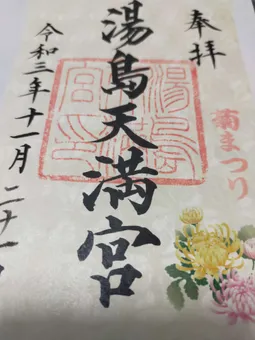 奉拝
湯島天満宮
菊まつり
令和三年十一月二十一日